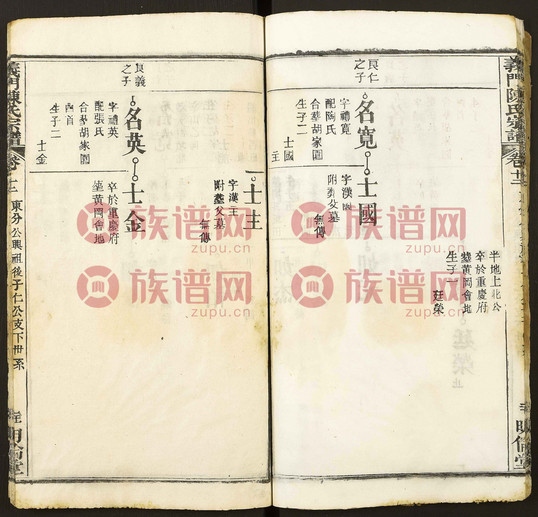 義門陳氏宗譜
卷廿二
明倫堂
良仁
之子
名寬
士國
字禮寬
配陶氏
合葬胡家園
生子二
士國
士主
字漢國
附葬父墓
無傳
半地上北公
卒於重慶府
葬黃岡會地
生子一
廷榮
士主
字漢主
附葬父墓
無傳
良義
之子
名英
士金
字禮英
配張氏
合葬胡家園
內首
生子二
士金
卒於重慶府
葬黃岡會地
義門陳氏宗譜
東分公興祖後子仁公支下世系
明倫堂
族谱网
www.zupu.cn
族谱网
www.zupu.cn
族谱网
www.zupu.cn
族谱网
www.zupu.cn